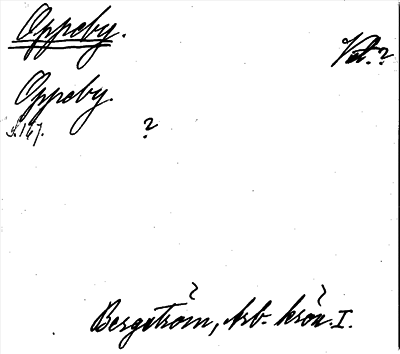 Oppeby.
Vst.?
Oppeby.
s. 167.
?
Bergström, Arb. krön. I.